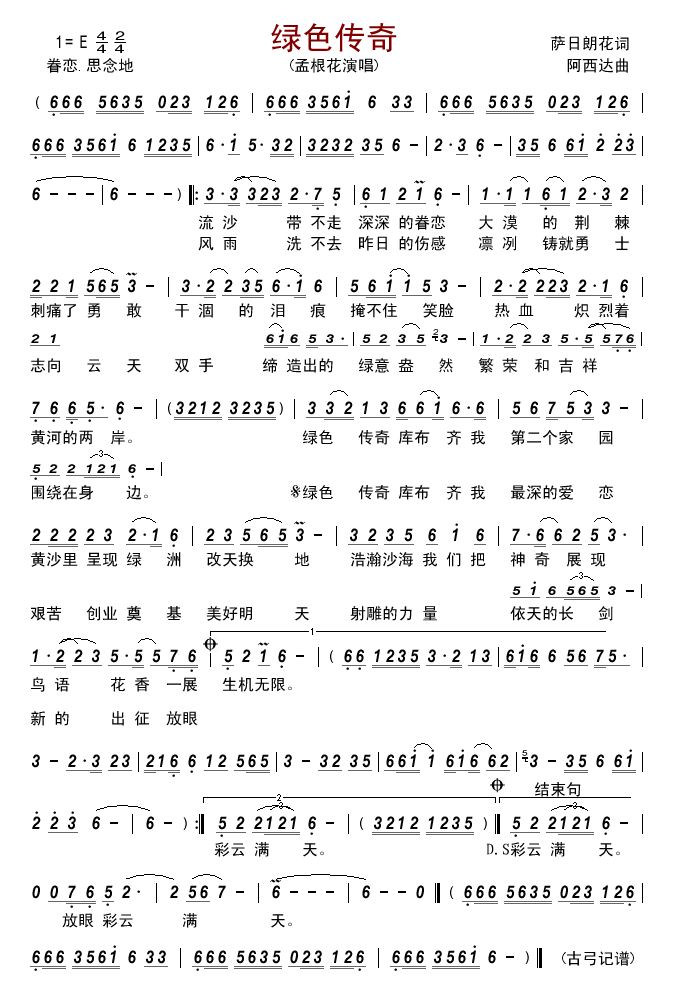 绿色传奇
1= E 4/4 2/4
萨日朗花词
眷恋.思念地
(孟根花演唱)
阿西达曲
( 666 5635 023 126 | 666 3561 6 33 | 666 5635 023 126 |
666 3561 6 1235 | 6·1 5·32 | 3232 35 6 - | 2·3 6 - | 35 6 61 2 23 |
6 - - - | 6 - - - ) ‖: 3·3 323 2·7 5 | 61 21 6 - | 1·1 1 61 2·3 2 |
流沙 带不走 深深的眷恋 大漠 的 荆 棘
风雨 洗不去 昨日的伤感 凛冽 铸就勇 士
221 565 3 - | 3·2 235 6·1 6 | 5611 53 - | 2·2 223 2·1 6 |
刺痛了 勇 敢 干涸 的 泪 痕 掩不住 笑脸 热血 炽烈着
21 616 53· | 52 35 3 - | 1·2 23 5·5 576 |
志向 云 天 双手 缔造出的 绿意盎 然 繁荣 和吉祥
7665· 6 - | (3212 3235) | 332 13 661 6·6 | 567 53 3 - |
黄河的两 岸。 绿色 传奇库布 齐我 第二个家 园
522 121 6 - |
3
围绕在身 边。 𝄋绿色 传奇库布 齐我 最深的爱 恋
22223 2·1 6 | 23 565 3 - | 3235 61 6 | 7·6 625 3· |
黄沙里呈现绿 洲 改天换 地 浩瀚沙海我们把 神奇 展现
51 6 565 3 - |
3
艰苦 创业奠 基 美好明 天 射雕的力量 依天的长 剑
1
1·223 5·5576 | 521 6 - | (66 1235 3·2 13 | 616 6 56 75· |
鸟语 花香一展 生机无限。
新的 出征放眼
3 - 2·3 23 | 216 6 12 565 | 3 - 32 35 | 661 1 616 62 | 53 - 35 6 61 |
2
结束句
2 23 6 - | 6 - ) :‖ 52 2121 6 - | ( 3212 1235 ) ‖ 52 2121 6 - |
彩云 满 天。 D.S彩云 满 天。
0076 5 2· | 2 56 7 - | 6 - - - | 6 - - 0 ‖ ( 666 5635 023 126 |
放眼 彩云 满 天。
666 3561 6 33 | 666 5635 023 126 | 666 3561 6 - ) ‖ (古弓记谱)